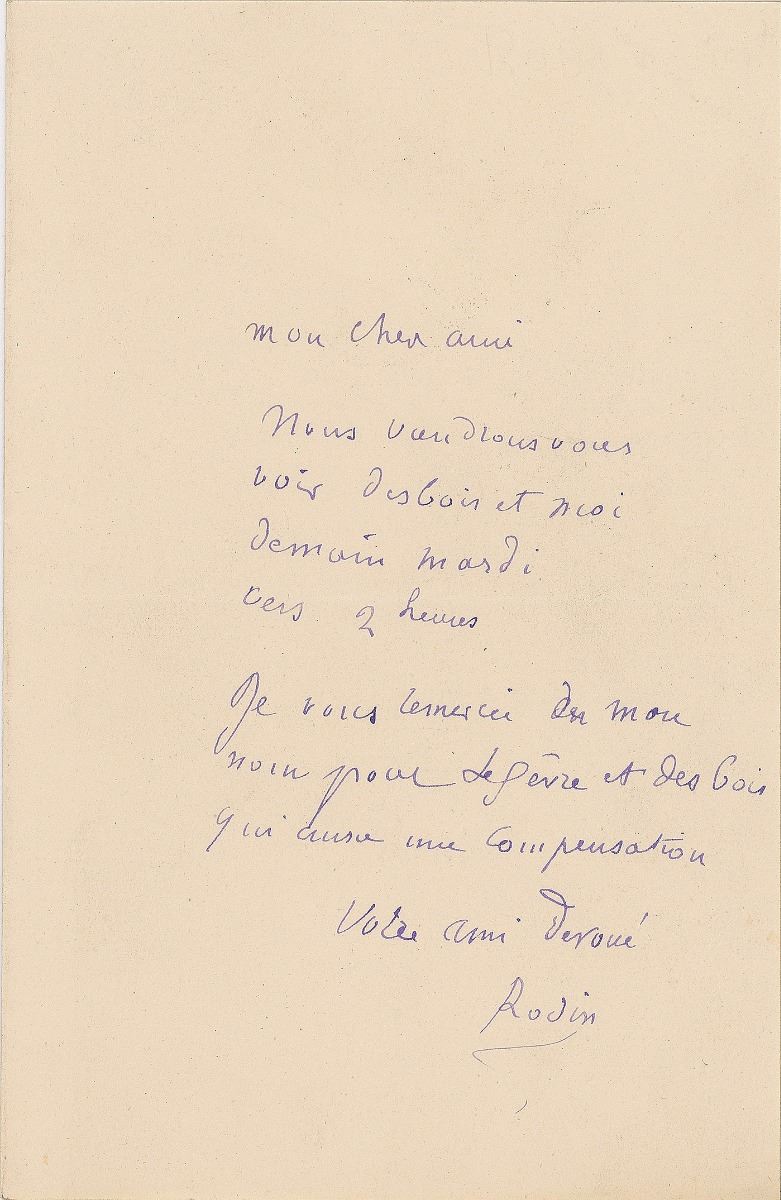 mon cher ami
Nous viendrons vous
voir desbois et moi
demain mardi
vers 2 heures
Je vous remercie en mon
nom pour Lefèvre et des bois
qui aura une compensation
Votre ami devoué
Rodin